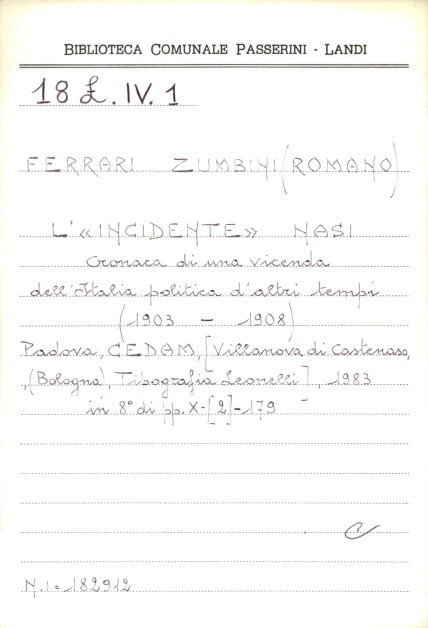 BIBLIOTECA COMUNALE PASSERINI - LANDI
18 £. IV. 1
FERRARI ZUMBINI (ROMANO)
L'«INCIDENTE» NASI
Cronaca di una vicenda
dell'Italia politica d'altri tempi
(1903 - 1908)
Padova, CEDAM, [Villanova di Castenaso,
(Bologna), Tipografia Leonelli], 1983
in 8° di pp. X-[2]-179
N.I = 182912